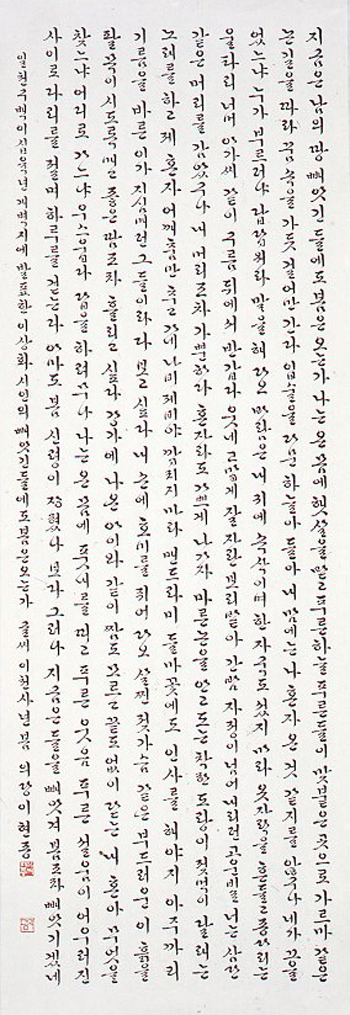 지금은 남의 땅 빼앗긴 들에도 봄은 오는가 나는 온 몸에 햇살을 받고 푸른 하늘 푸른 들이 맞붙은 곳으로 가르마 같은
논길을 따라 꿈속을 가듯 걸어만 간다 입술을 다문 하늘아 들아 내 맘에는 나 혼자 온 것 같지를 않구나 네가 끌
었느냐 누가 부르더냐 답답워라 말을 해 다오 바람은 내 귀에 속삭이며 한 자욱도 섰지 마라 옷자락을 흔들고 종다리는
울타리 너머 아가씨 같이 구름 뒤에서 반갑다 웃네 고맙게 잘 자란 보리밭아 간밤 자정이 넘어 내리던 고운 비로 너는 삼단
같은 머리를 감았구나 내 머리조차 가뿐하다 혼자라도 가쁘게 나가자 마른 논을 안고 도는 착한 도랑이 젖먹이 달래는
노래를 하고 제 혼자 어깨춤만 추고 가네 나비 제비야 깝치지 마라 맨드라미 들마꽃에도 인사를 해야지 아주까리
기름을 바른 이가 지심매던 그 들이라 다 보고 싶다 내 손에 호미를 쥐어 다오 살찐 젖가슴 같은 부드러운 이 흙을
팔목이 시도록 매고 좋은 땀조차 흘리고 싶다 강가에 나온 아이와 같이 짬도 모르고 끝도 없이 닫는 내 혼아 무엇을
찾느냐 어디로 가느냐 우스웁다 답을 하려무나 나는 온 몸에 풋내를 띠고 푸른 웃음 푸른 설움이 어우러진
사이로 다리를 절며 하루를 걷는다 아마도 봄 신령이 잡혔나 보다 그러나 지금은 들을 빼앗겨 봄조차 빼앗기겠네
일천구백이십육년 개벽지에 발표한 이상화 시인의 빼앗긴 들에도 봄은 오는가 글씨 이천사년 봄 의당 이현종